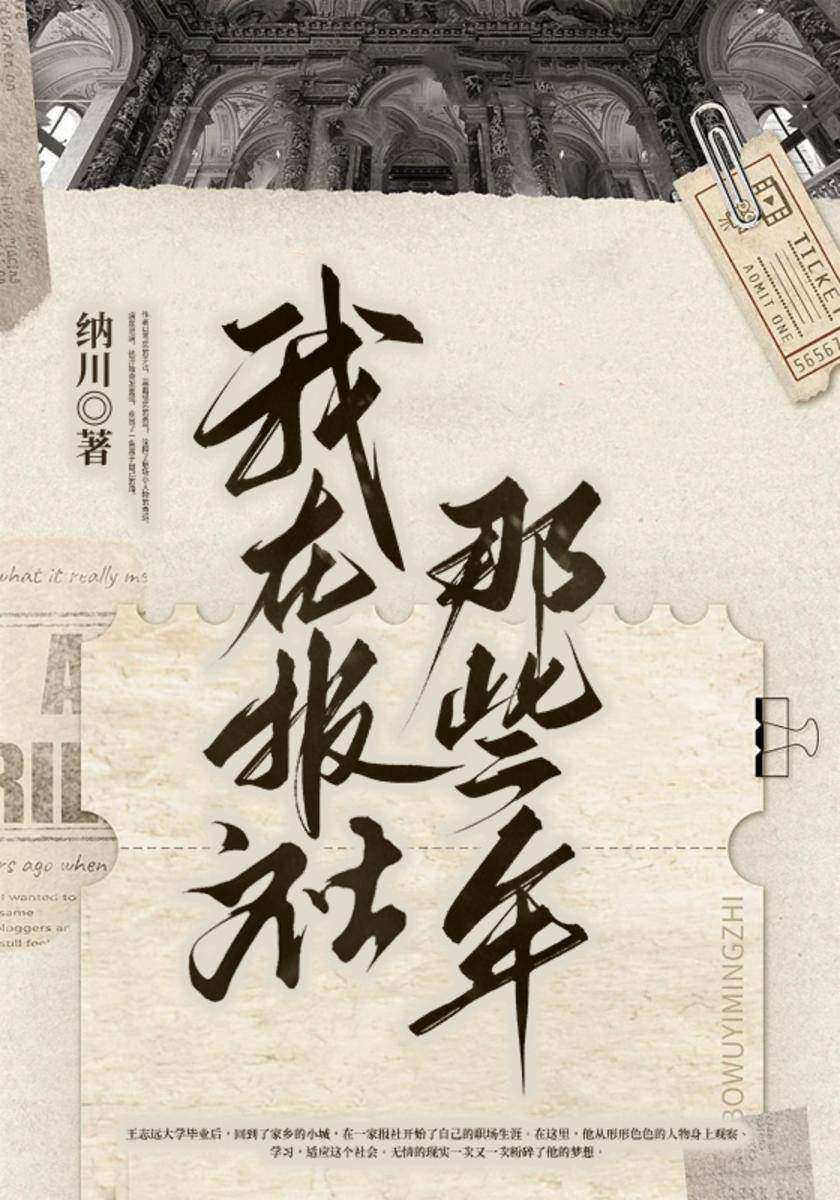 TICKE
ADMIT ONE
56567
我在报社
那些年
纳川◎著
what it really me
A
RIL
rs ago when
I wanted to
same
loggers ar
still feel
BOWUYIMINGZHI
王志远大学毕业后,回到了家乡的小城,在一家报社开始了自己的职场生涯。在这里,他从形形色色的人物身上观察、
学习,适应这个社会。无情的现实一次又一次粉碎了他的梦想。